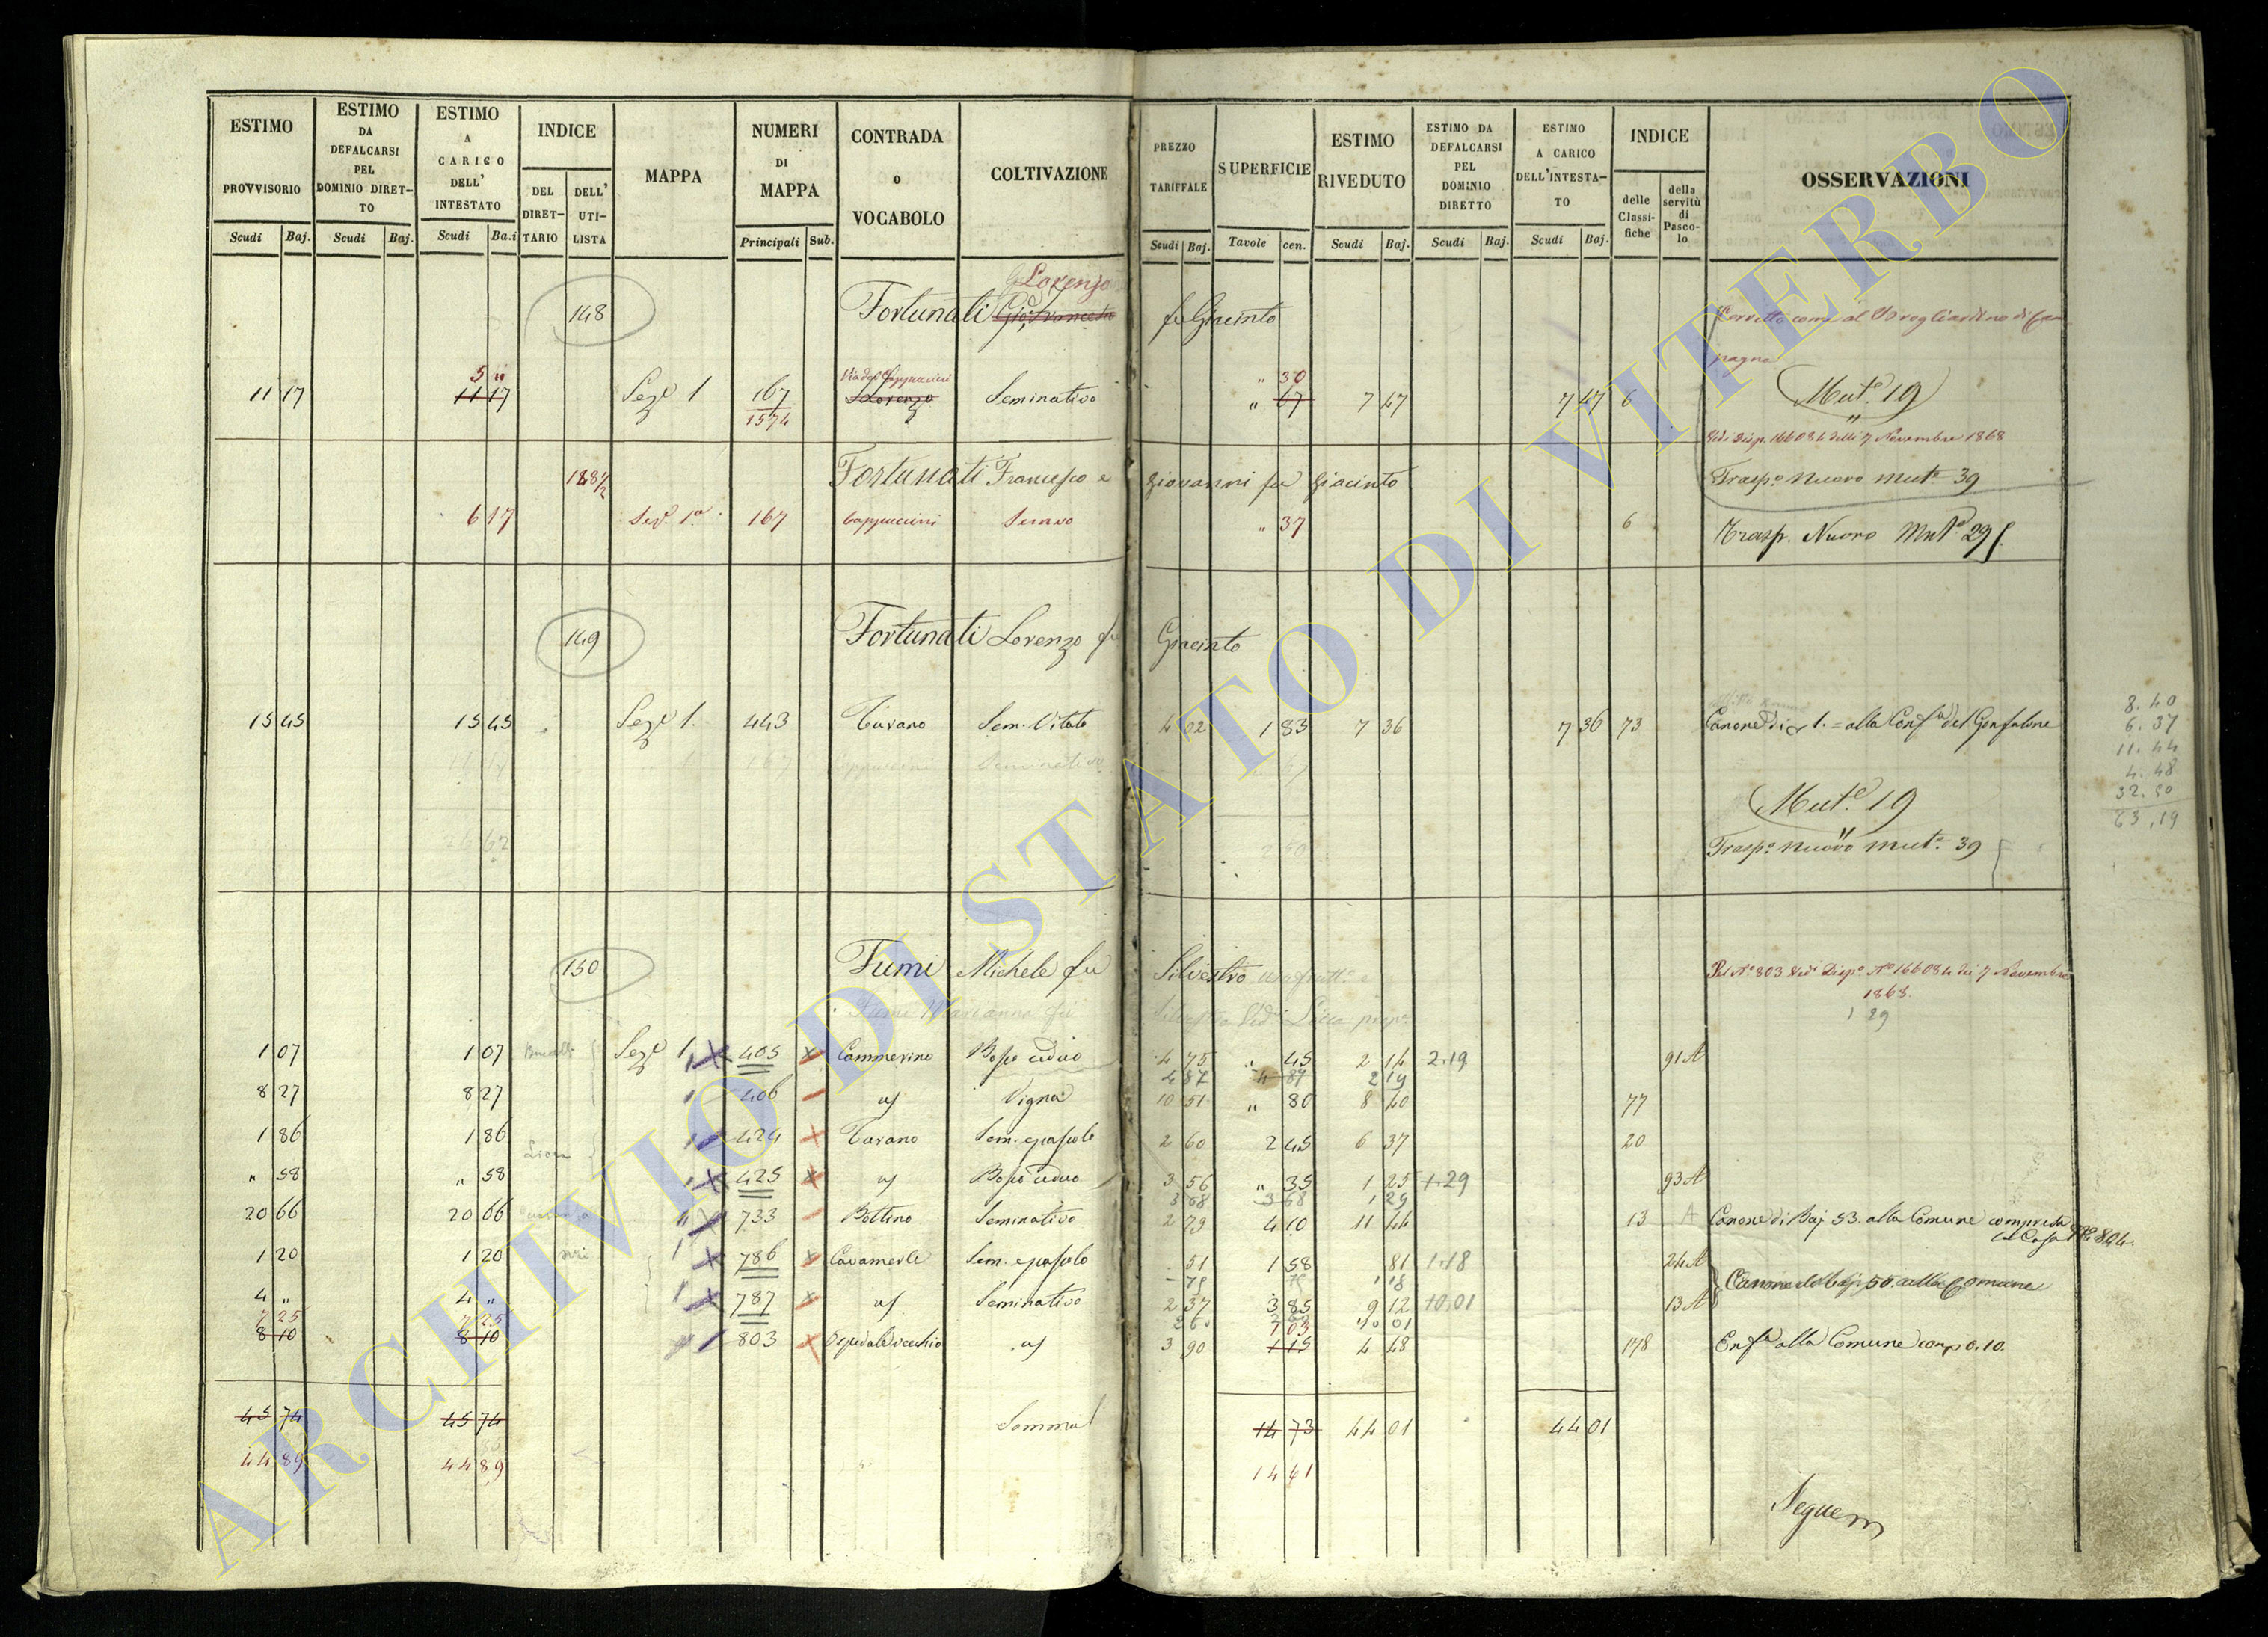 ESTIMO PROVVISORIO
Scudi Baj.
ESTIMO DA DEFALCARSI PEL DOMINIO DIRET-TO
Scudi Baj.
ESTIMO A CARICO DELL' INTESTATO
Scudi Ba.i
INDICE
DEL DIRET-TARIO
DELL' UTI-LISTA
MAPPA
NUMERI DI MAPPA
Principali Sub.
CONTRADA o VOCABOLO
COLTIVAZIONE
PREZZO TARIFFALE
Scudi Baj.
SUPERFICIE
Tavole cen.
ESTIMO RIVEDUTO
Scudi Baj.
ESTIMO DA DEFALCARSI PEL DOMINIO DIRETTO
Scudi Baj.
ESTIMO A CARICO DELL'INTESTA-TO
Scudi Baj.
INDICE
delle Classi-fiche
della servitù di Pasco-lo
OSSERVAZIONI
Lorenzo
148 Fortunati fu Giacinto
5
30
11 17 11 17 Sez.e 1 167 S. Lorenzo Seminativo " 67 7 47 7 47 6
1574
Mut.e 19
Vedi Disp. 166084 delli 7 Novembre 1868
148 1/2 Fortunati Francesco e Giovanni fu Giacinto Trasp.o Nuovo Mut.e 39
6 17 Sez.e 1.a 167 Cappuccini " 37 6 Trasp. Nuovo Mut.e 29
149 Fortunati Lorenzo fu Giacinto
15 45 15 45 Sez.e 1. 443 Tavano Sem. Vitato 4 02 1 83 7 36 7 36 73 Canone di 1. = alla Conf.a del Gonfalone
8.40
6.37
11.44
4.48
32.50
63.19
Mut.e 19
Trasp.o Nuovo Mut.e 39
150 Fumi Michele fu Silvestro
Pel N.o 803 Ved.i Disp.e N.o 166084 dei 7 Novembre
1868.
1 07 1 07 Sez.e 1 405 Cammerino Bosco ceduo 4 75 " 45 2 14 2.19 91 A
4 87 2 19
8 27 8 27 " 406 Vigna 10 51 " 80 8 40 77
1 86 1 86 " 424 Tavano Sem. e pascolo 2 60 2 45 6 37 20
" 58 " 58 " 425 Bosco ceduo 3 56 " 35 1 25 1.29 93 A
3 68 1 29
20 66 20 66 " 733 Bottino Seminativo 2 79 4 10 11 44 13 A Canone di Baj 53. alla Comune compresa
1 20 1 20 1 786 Cavamerle Sem. e pascolo 51 1 58 81 1.18 24 A
Canone di Baj. 50. alla Comune
4 " 4 " 1 787 Seminativo 2 37 3 85 9 12 10.01 13 A
7 25 7 25 1 03
8 10 8 10 803 Ospedale vecchio 3 90 1 15 4 48 178 Enf.a alla Comune con 0.10.
45 74 45 74 Somma 14 73 44 01 44 01
44 89 44 89 14 61
Seguem
ARCHIVIO DI STATO DI VITERBO